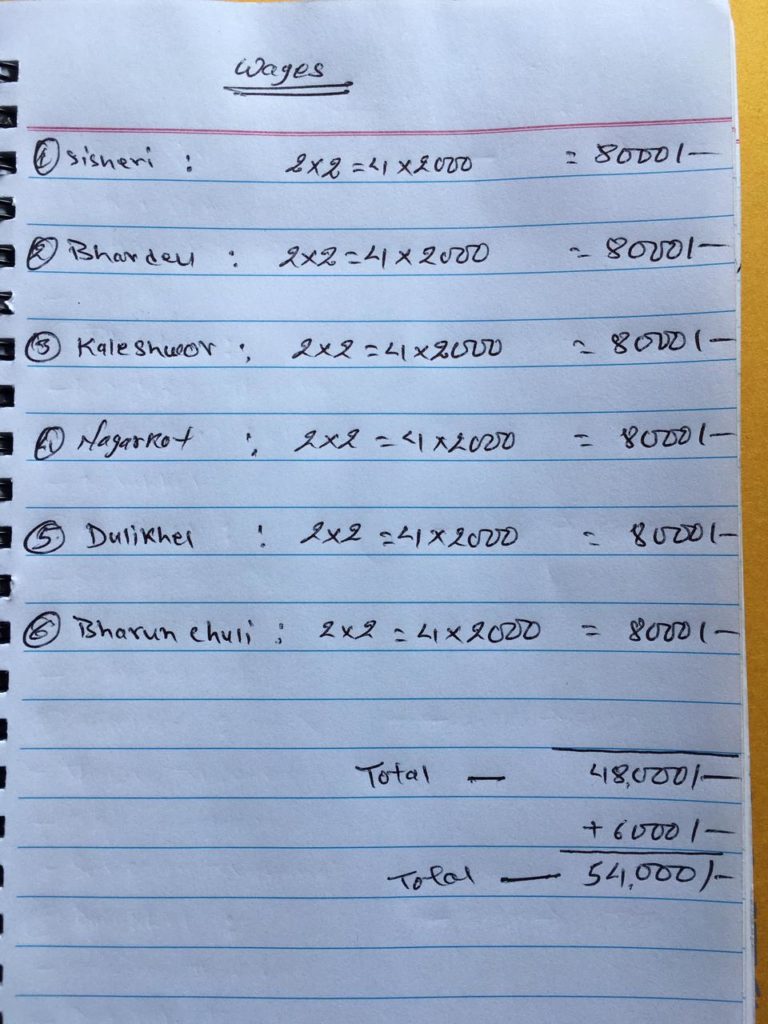 Wages
① Sisneri : 2×2=4×2000 = 8000/-
② Bhardeu : 2×2=4×2000 = 8000/-
③ Kaleshwor : 2×2=4×2000 = 8000/-
④ Nagarkot : 2×2=4×2000 = 8000/-
⑤ Dulikhel : 2×2=4×2000 = 8000/-
⑥ Bharun chuli : 2×2=4×2000 = 8000/-
Total — 48,000/-
+ 6000/-
Total — 54,000/-